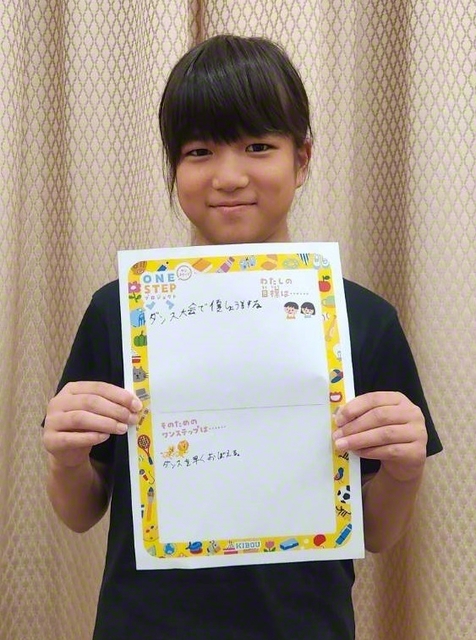 ONE
STEP
プロジェクト
わたしの
目標は……
ダンス大会で優しょうする
そのための
ワンステップは……
ダンスを早くおぼえる。
KIBOU